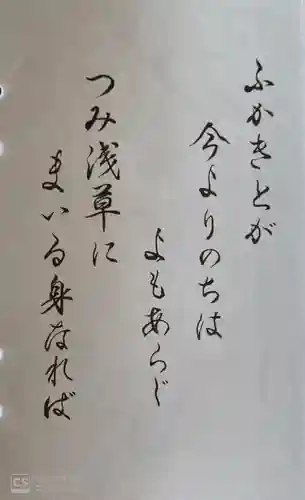 ふかきとが
今よりのちは
よもあらじ
つみ浅草に
まいる身なれば
CS